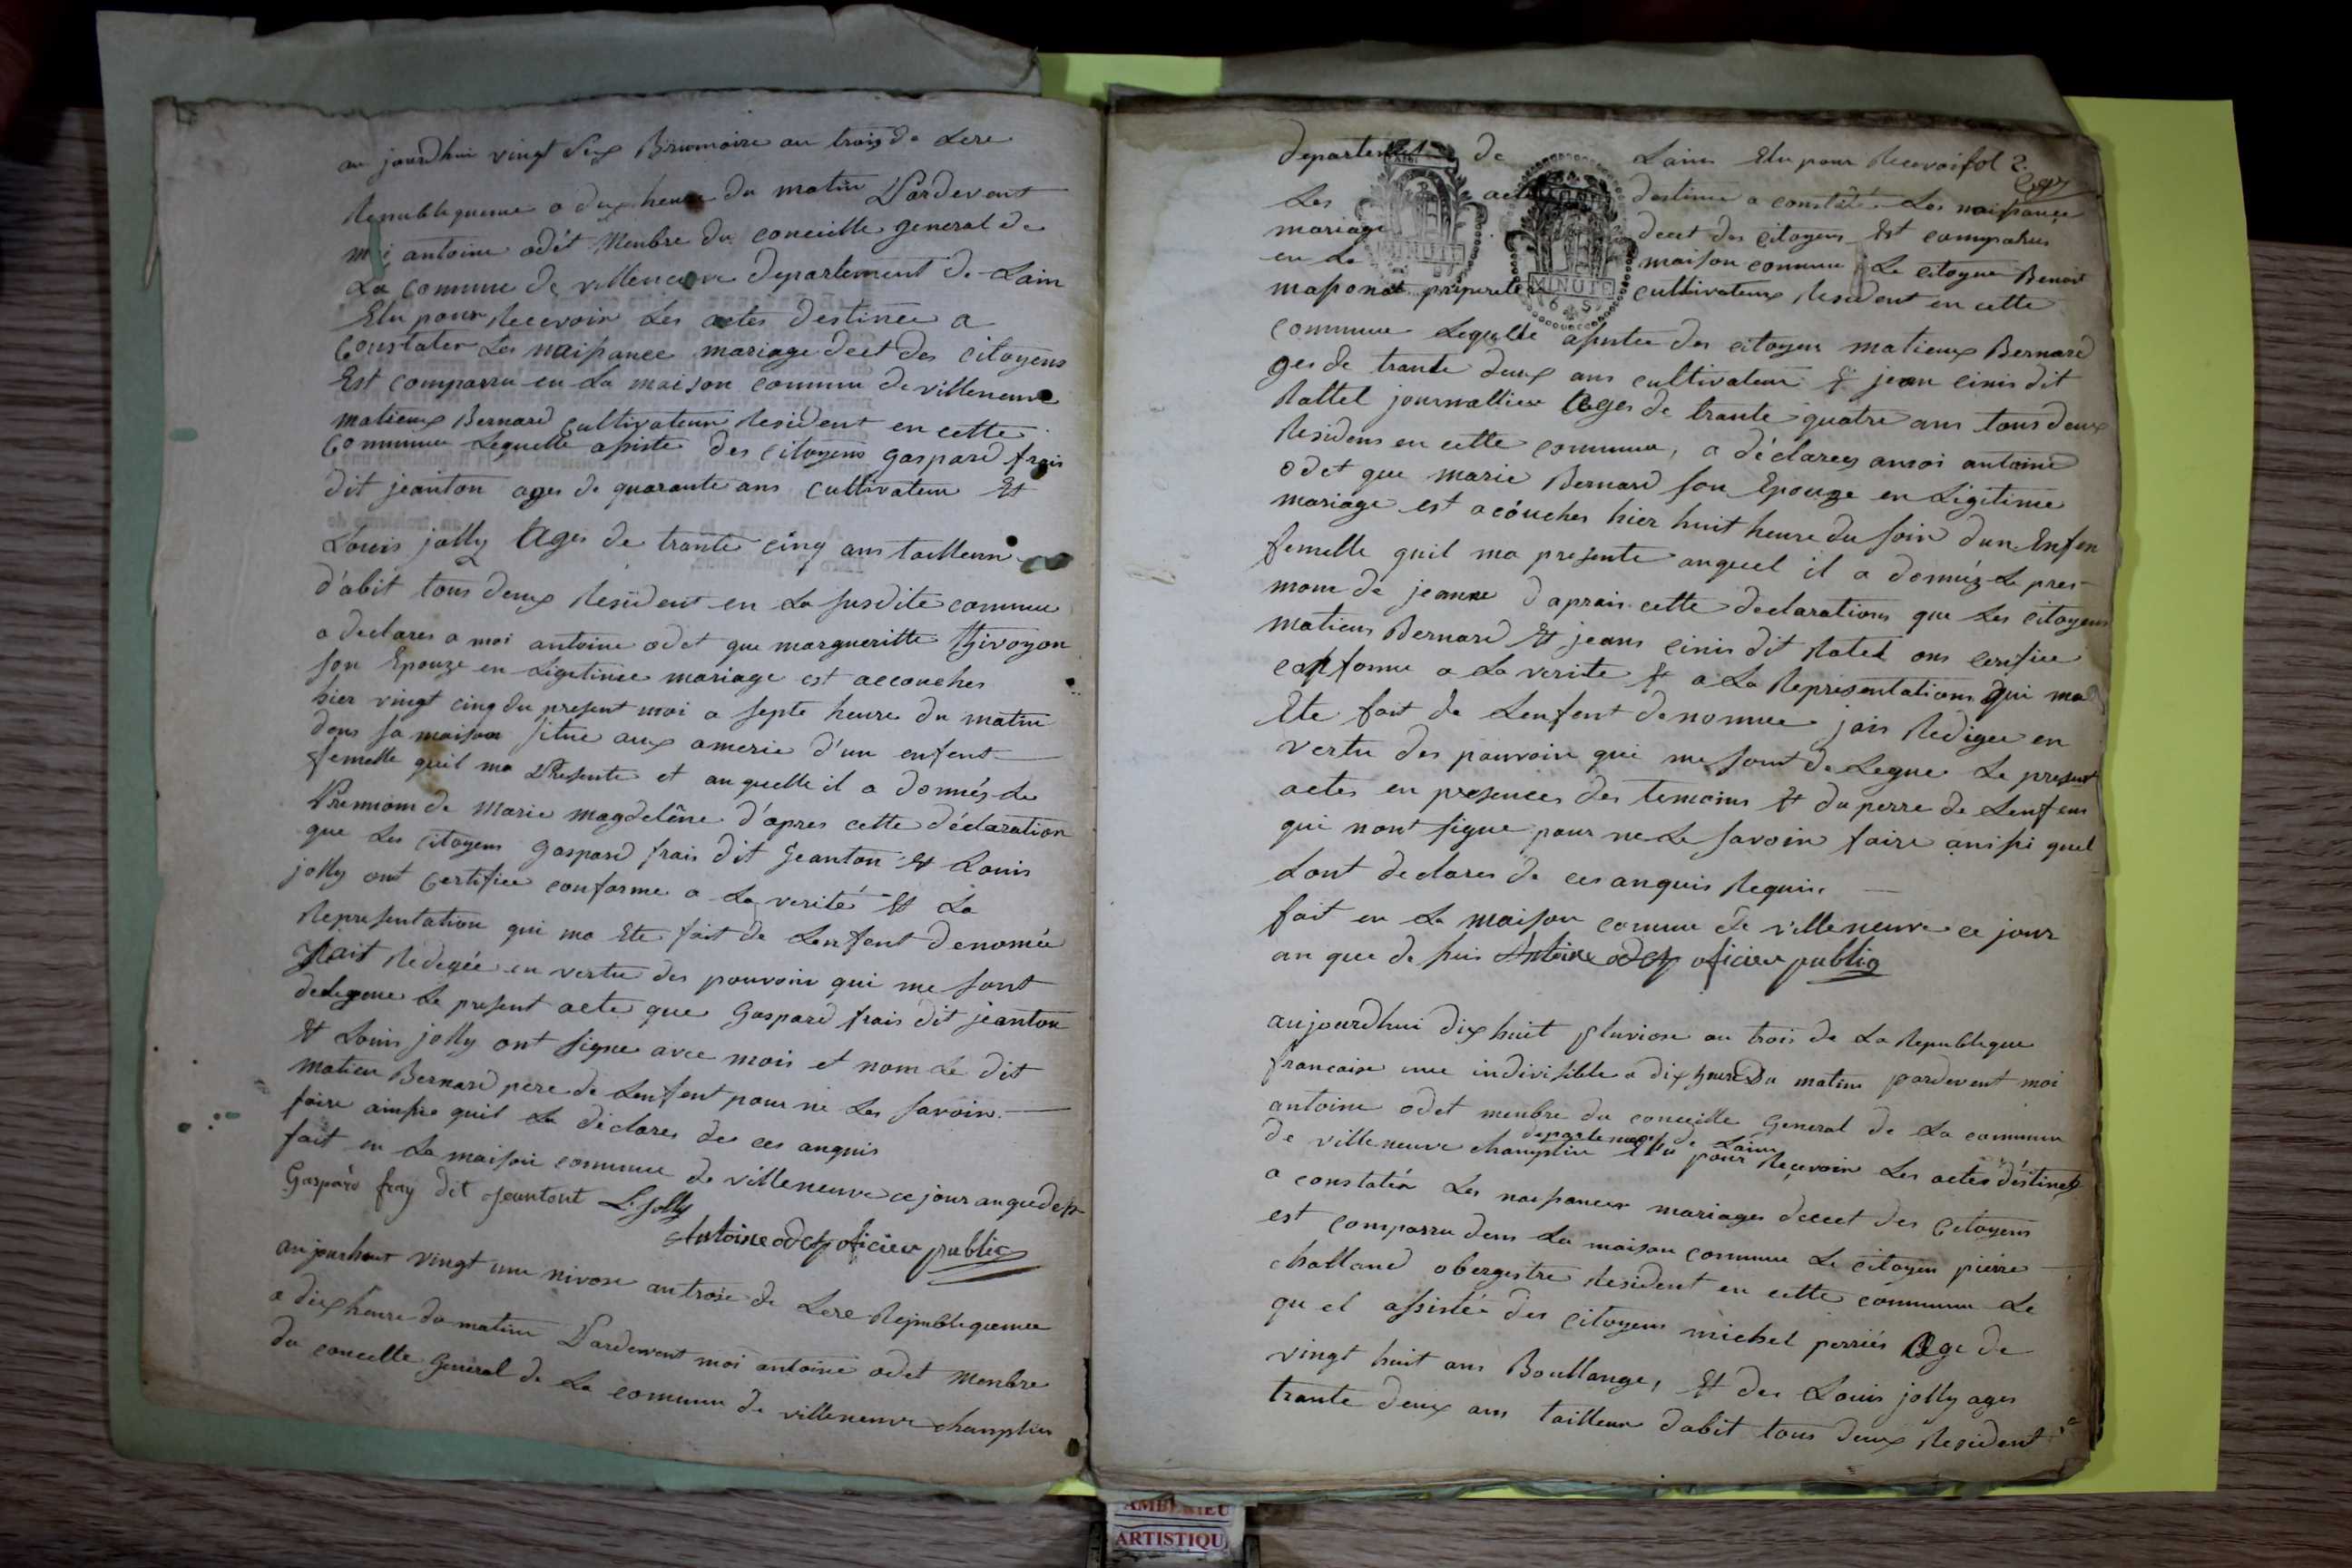 au jourdhui vingt six Brumaire au trois de Lere
Republiquenne a dix heure du matin Pardevent
moi antoine odét Menbre du conceille general de
La comune de villeneuve departement de Lain
Elu pour Recevoir Les actes destinée a
Constater Les naissance mariage decet des citoyens
Est comparru en La maison commune de villeneuve
matieux Bernard Cultivateur Resident en cette
Commune Lequelle assiste des citoyens gaspard frais
dit jeanton ages de quarante ans Cultivateur Et
Louis jolly Ages de trante cinq ans tailleur
d'abit tous deux Resident en La susdite commune
a declares a moi antoine odet que margueritte thivoyon
son Epouze en Ligitimee mariage est accouches
hier vingt cinq du present moi a septe heure du matin
dens sa maison situe aux amerie d'un enfent
femelle quil ma Presente et auquelle il a donnés Le
Prenniom de Marie magdelêne d'apres cette déclaration
que Les Citoyens gaspard frais dit Jeanton Et Louis
jolly ont Certifiee conforme a La verité Et La
Representation qui ma Ete fait de Lenfent denomée
Jait Redegée en vertu des pouvoir qui me sont
delegeue Le present acte que Gaspard frais dit jeanton
Et Louis jolly ont signe avec mois et nom Le dit
matieu Bernard pere de Lenfent pour ne Les savoir
faire ainsie quil La déclares de ces anquis
fait en La maison commune de villeneuve ce jour an que de ss
Gaspard fray dit Jeantont L. Jolly
Antoine odet oficier public
aujourhuit vingt une nivose an trois de Lere Republiquenne
a dix heure du matin Pardevent moi antoine odet Menbre
du conceille General de La commune de villeneuve champtin
departement de Lain Elu pour Recevoir fol 2.
Les actes destinee a constater Les naissance
mariage decet des citoyens Est comparus
en La maison commune Le citoyen Benoit
massonot propriete cultivateur Resident en cette
commune Lequelle assistee des citoyens matieux Bernard
ges de trante deux ans cultivateur Et jean cinis dit
Rattel journallier Ages de trante quatre ans tous deux
Residens en cette commune, a déclarees amoi antoine
odet que marie Bernard son Epouze en Ligitime
mariage est acóuches hier huit heure du soir dun Enfen
femelle quil ma presente auquel il a donnéz Le pres-
mom de jeanne daprais cette declarations que Les citoyens
matieus Bernard Et jeans cinis dit Ratel ons cerifiee
conforme a La verite Et a La Representations qui ma
Ete fait de Lenfent denomme jais Redigee en
vertu des pouvoir qui me sont de Legue Le present
actes en presences des temoins Et du perre de Lenfens
qui nont signe pour ne Le savoir faire ainssi quel
Lont declares de ces anquis Requis
fait en La maison comune de villeneuve ce jour
an que de suis Antoine odet oficier public
aujourdhui dix huit pluviose au trois de La Republique
francaise une indivisible a dix heures du matin pardevent moi
antoine odet menbre du conceille General de La commune
departement de Lain
de villeneuve champtin Elu pour Recevoir Les actes déstines
a constatér Les naissances mariages deccet des Citoyens
est comparru dens La maison commune Le citoyen piérre
challand obergistre Resident en cette commune Le
quel assistée des citoyens michel perriés Age de
vingt huit ans Boullange, Et des Louis jolly ages
trante deux ans tailleur dabit tous deux Resident
MINUTE
MINUTE
AMBERIEU
ARTISTIQU